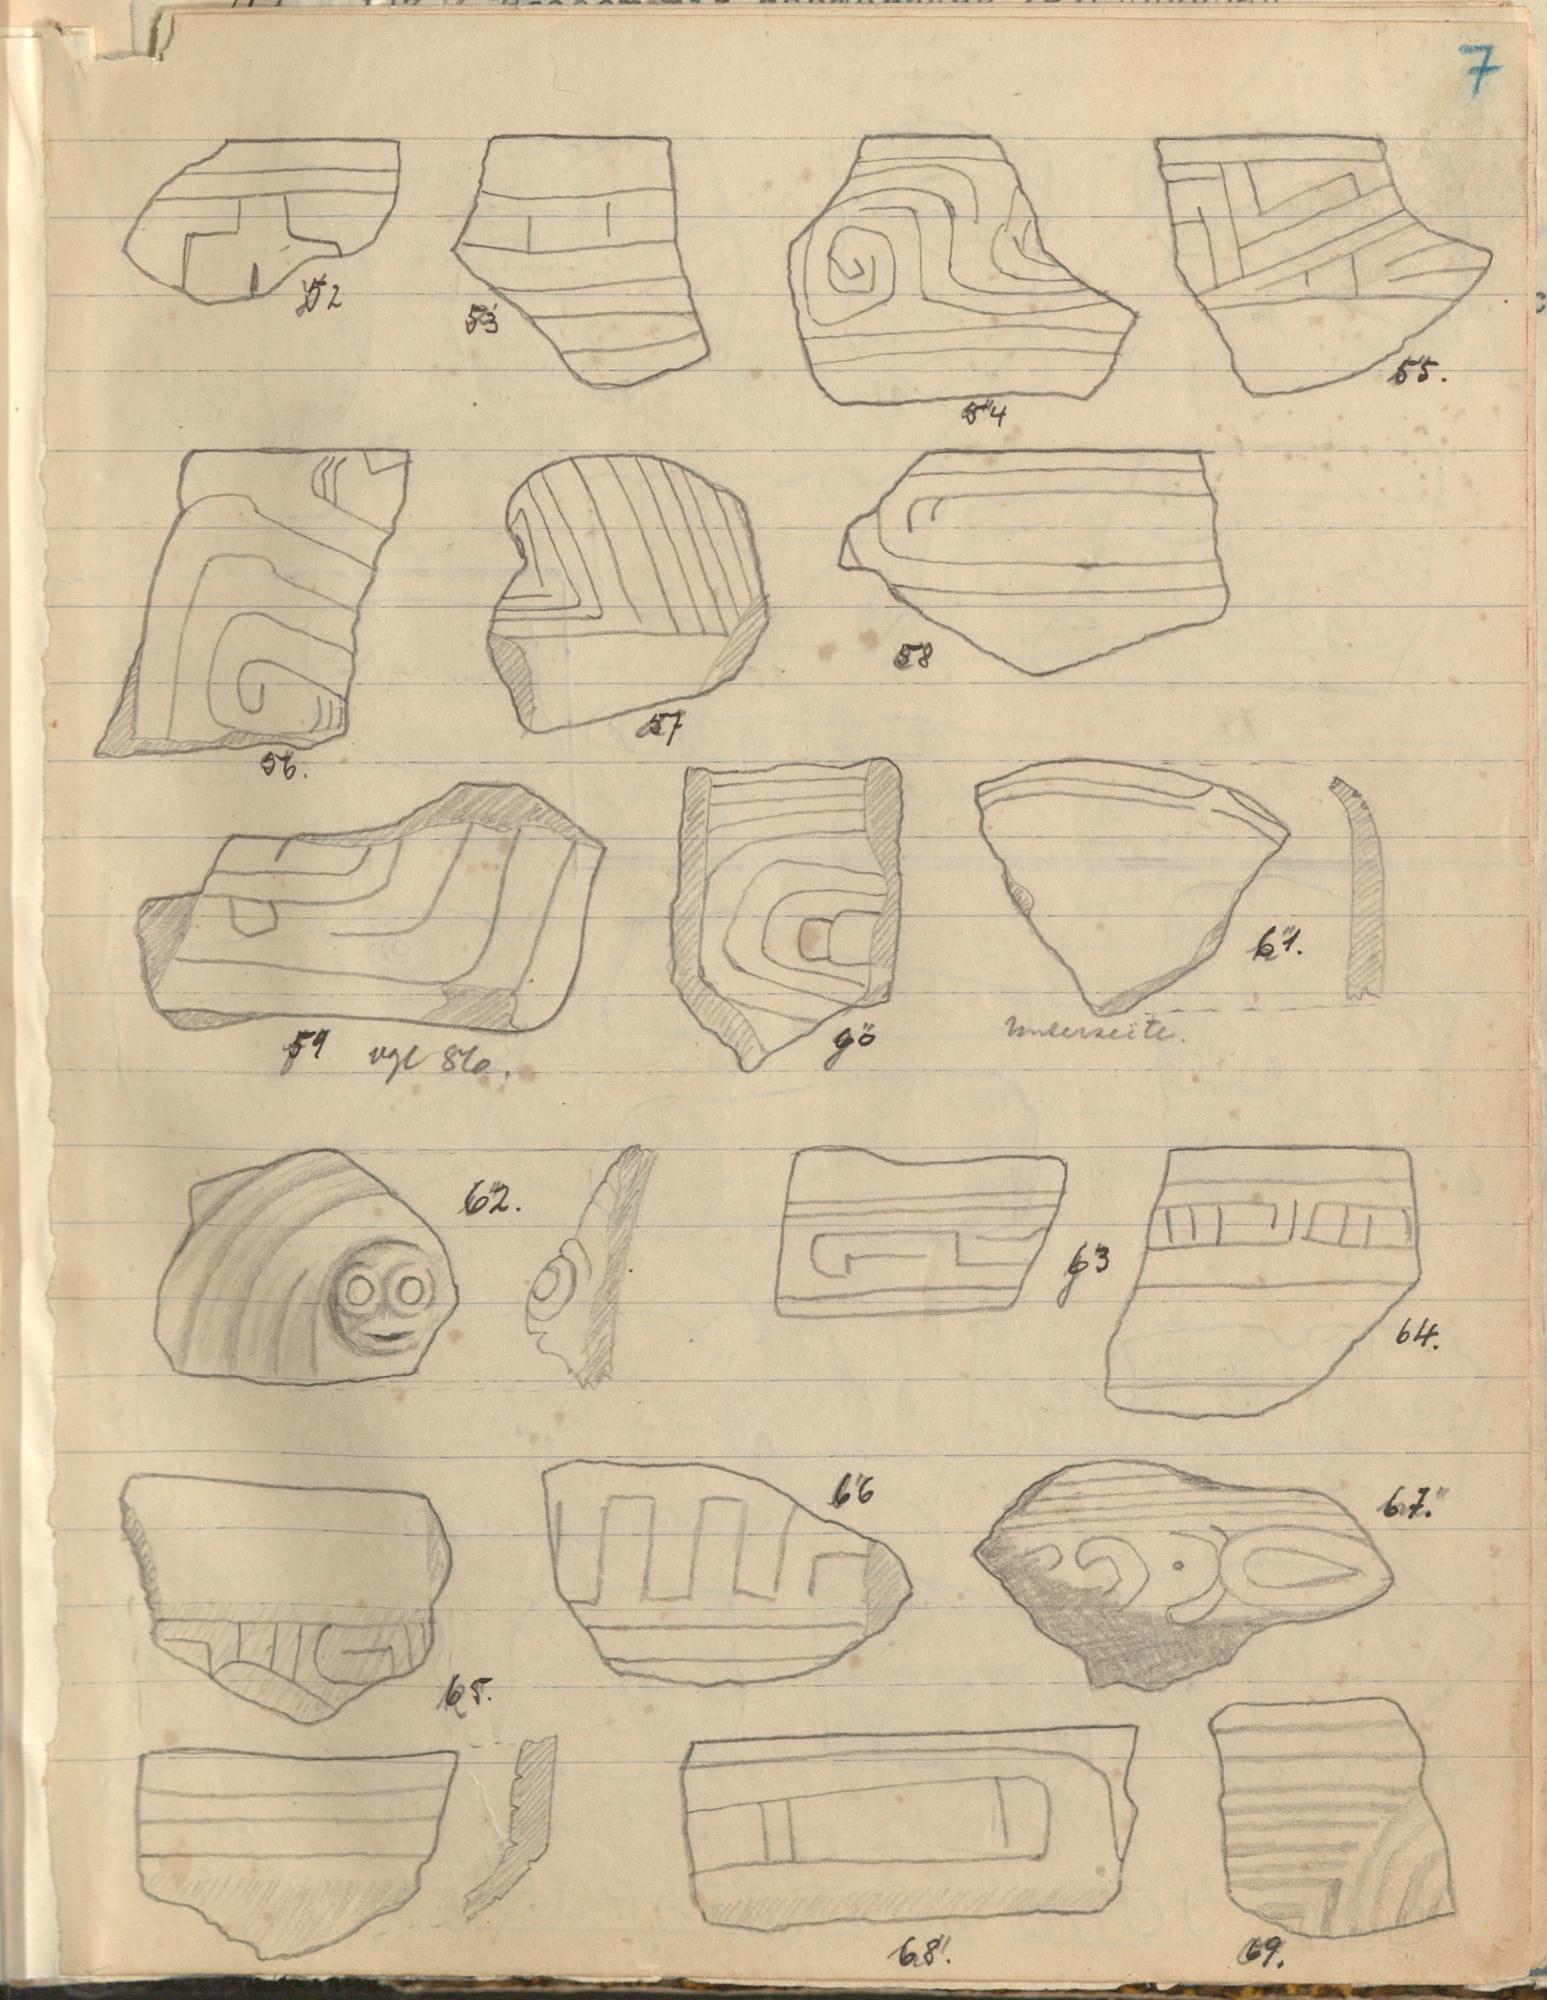 7
52
53
54
55.
56.
57
58
59 vgl 86.
60
61.
Unterseite.
62.
63
64.
65.
66
67.
68.
69.